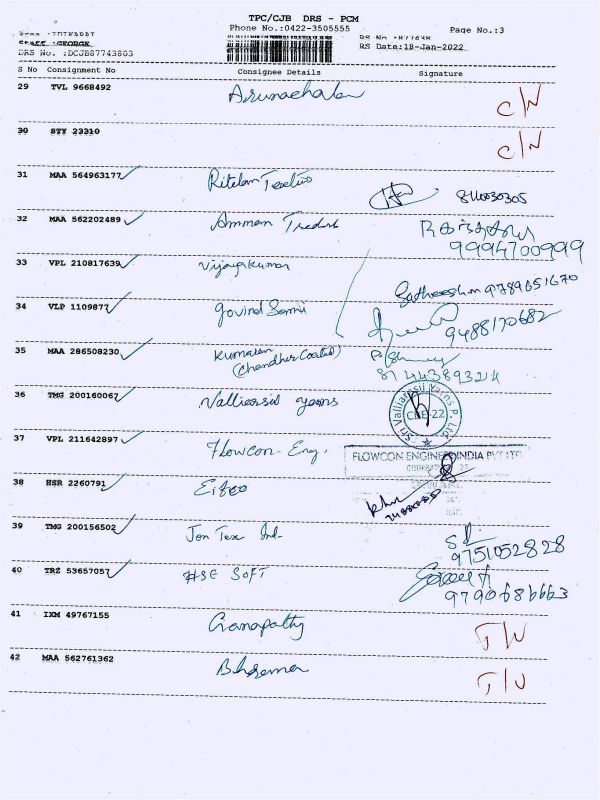 TPC/CJB DRS - PCM
Phone No.:0422-3505555 Page No.:3
Staff :GEORGE RS Date:18-Jan-2022
DRS No. :DCJB87743803
S No Consignment No Consignee Details Signature
29 TVL 9668492 Arunachalam C/N
30 STY 23310 C/N
31 MAA 564963177 Ritelan Textiles
32 MAA 562202489 Amman Traders
9994700999
33 VPL 210817639 Vijayakumar
Satheesh m 9789651670
34 VLP 1109877 Govind Sami 9488170682
35 MAA 286508230 Kumaran
(Chandher Coated)
8744389324
36 TMG 200160067 Valliarasi yarns
Sri Valliarasu Yarns P. Ltd.
CBE-22
37 VPL 211642897 Flowcon Eng.
FLOWCON ENGINEE INDIA PVT LTD
38 HSR 2260791 Eifco
39 TMG 200156502 Jon Tex Ind-
9751052828
40 TRZ 53657057 HSE SOFT
9790686663
41 IXM 49767155 Ganapathy T/N
42 MAA 562761362 T/N